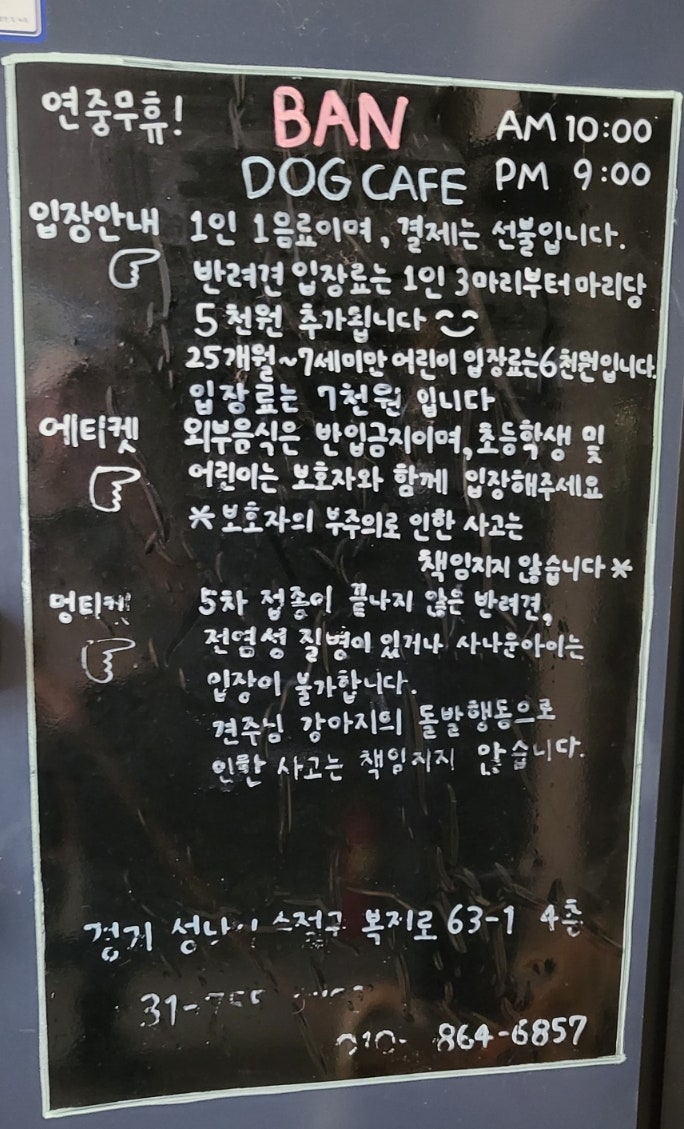 연중무휴!
BAN
DOG CAFE
AM 10:00
PM 9:00
입장안내
1인 1음료이며, 결제는 선불입니다.
반려견 입장료는 1인 3마리부터 마리당
5천원 추가됩니다
25개월~7세미만 어린이 입장료는6천원입니다.
입장료는 7천원 입니다
에티켓
외부음식은 반입금지이며, 초등학생 및
어린이는 보호자와 함께 입장해주세요
*보호자의 부주의로 인한 사고는
책임지지 않습니다*
멍티켓
5차 접종이 끝나지 않은 반려견,
전염성 질병이 있거나 사나운아이는
입장이 불가합니다.
견주님 강아지의 돌발행동으로
인한 사고는 책임지지 않습니다.
경기 복지로 63-1 4층
31-
010- 864-6857